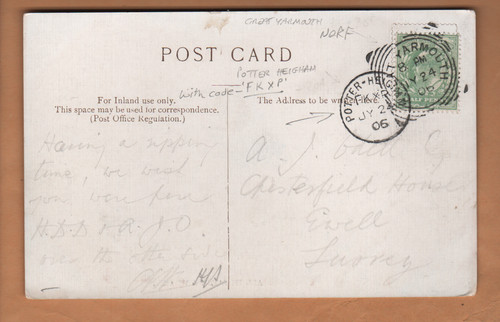 GREAT YARMOUTH
NORF
POST CARD
POTTER HEIGHAM
with code - 'FKXP'
For Inland use only.
This space may be used for correspondence.
(Post Office Regulation.)
The Address to be written here.
GREAT YARMOUTH
8 PM
JY 24
05
POTTER-HEIGHAM
FKXP
JY 2
06
Having a ripping
time, we wish
you were here
H.D.D & R.J.O.
over the the side
A. J.
Chesterfield House
Ewell
Surrey